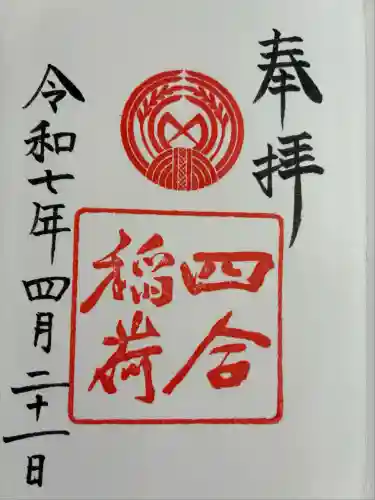 奉拝
四合
稲荷
令和七年四月二十一日